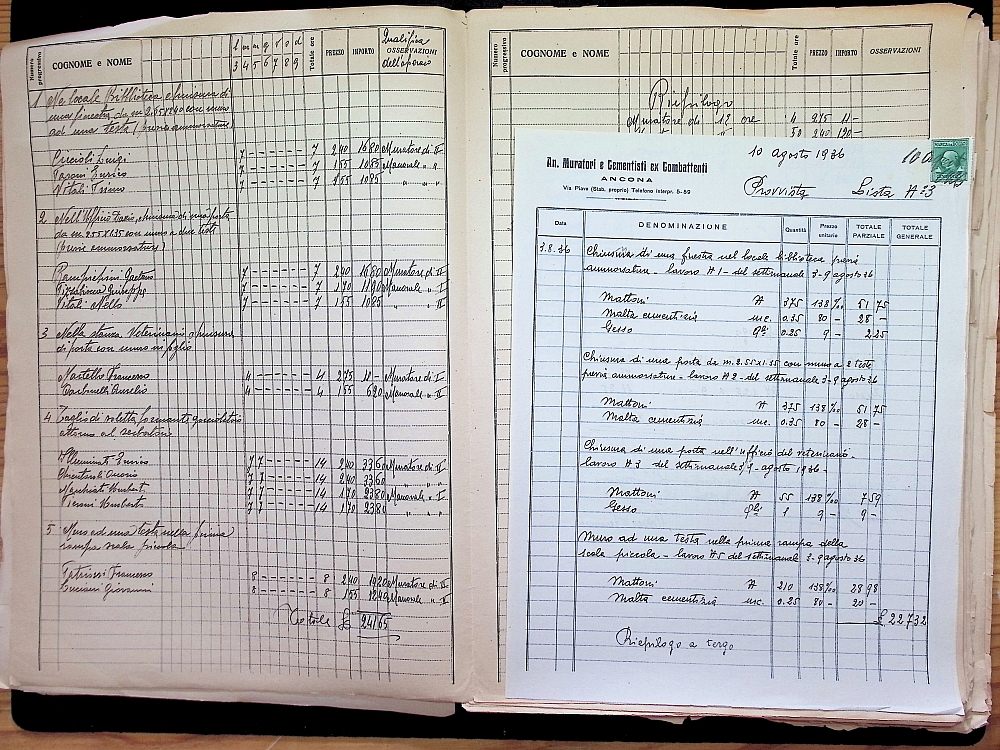 Numero progressivo
COGNOME e NOME
l m m g v s d
3 4 5 6 7 8 9
Totale ore
PREZZO
IMPORTO
Qualifica
OSSERVAZIONI
dell'operaio
1 Nel locale Biblioteca chiusura di
una finestra da m. 2.55x1.40 con muro
ad una testa (previe ammorsature)
Luigi 7 - - - - - - 7 2 40 16 80 Muratore di II
Enrico 7 - - - - - - 7 1 55 10 85 Manovale " II
Vitali Primo 7 - - - - - - 7 1 55 10 85 " " "
2 Nell'Ufficio Dazio, chiusura di una porta
da m. 2.55x1.35 con muro a due teste
(previe ammorsature)
Gaetano 7 - - - - - - 7 2 40 16 80 Muratore di II
Giuseppe 7 - - - - - - 7 1 70 11 90 Manovale " I
Vitali Nello 7 - - - - - - 7 1 55 10 85 " " II
3 Nella stanza Veterinario chiusura
di porta con muro in foglio
Francesco 4 - - - - - - 4 2 75 11 - Muratore di I
Aurelio 4 - - - - - - 4 1 55 6 20 Manovale " II
4 Taglio di soletta formante gocciolatoio
attorno al serbatoio
Enrico 7 7 - - - - - 14 2 40 33 60 Muratore di II
7 7 - - - - - 14 2 40 33 60 " " "
Umberto 7 7 - - - - - 14 1 70 23 80 Manovale " I
Umberto 7 7 - - - - - 14 1 70 23 80 " " "
5 Muro ad una testa nella prima
rampa scala piccola
Francesco 8 - - - - - - 8 2 40 19 20 Muratore di II
Luciani Giovanni 8 - - - - - - 8 1 55 12 40 Manovale " II
Totale £ 241 65
Numero progressivo
COGNOME e NOME
Totale ore
PREZZO
IMPORTO
OSSERVAZIONI
Riepilogo
Muratore di 1ª ore 4 2 75 11 -
" " 50 2 40 120 -
10 agosto 1936
An. Muratori e Cementisti ex Combattenti
ANCONA
Via Piave (Stab. proprio) Telefono interpr. 5-59
Provvista Lista N° 3
Data
DENOMINAZIONE
Quantità
Prezzo unitario
TOTALE PARZIALE
TOTALE GENERALE
3.8.36 Chiusura di una finestra nel locale biblioteca previa
ammorsature - lavoro N 1 - del settimanale 3-9 agosto 36
Mattoni N 375 138 ‰ 51 75
Malta cementizia mc. 0.35 80 - 28 -
Gesso qli 0.25 9 - 2.25
Chiusura di una porta da m. 2.55x1.35 con muro a 2 teste
previa ammorsature - lavoro N 2 - del settimanale 3-9 agosto 36
Mattoni N 375 138 ‰ 51 75
Malta cementizia mc. 0.35 80 - 28 -
Chiusura di una porta nell'ufficio del veterinario -
lavoro N 3 del settimanale 3-9 - agosto 36 -
Mattoni N 55 138 ‰ 7 59
Gesso qli 1 9 - 9 -
Muro ad una testa nella prima rampa della
scala piccola - lavoro N 5 del settimanale 3-9 agosto 36
Mattoni N 210 138 ‰ 28 98
Malta cementizia mc. 0.25 80 - 20 -
£ 227 32
Riepilogo a tergo